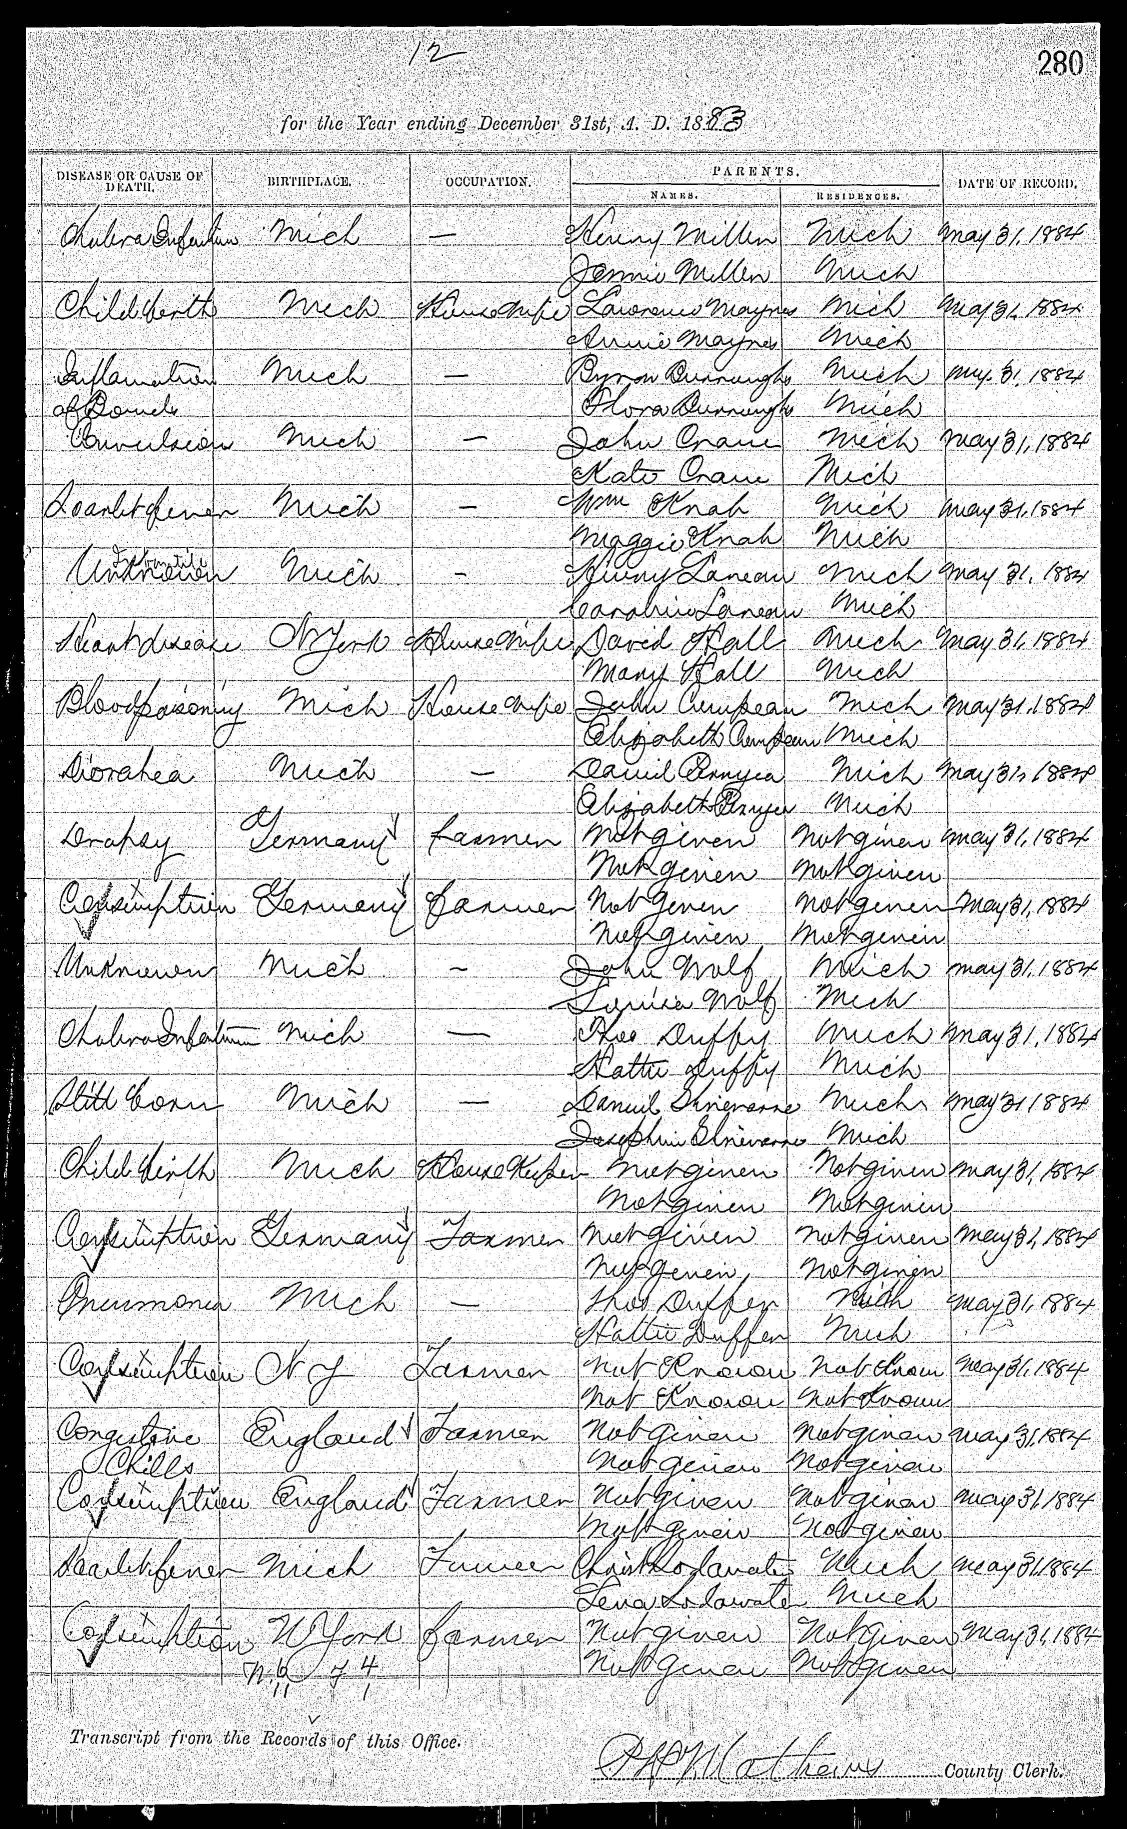 12
280
for the Year ending December 31st, A. D. 1883
DISEASE OR CAUSE OF DEATH. BIRTHPLACE. OCCUPATION. PARENTS. DATE OF RECORD.
NAMES. RESIDENCES.
Cholera Infantum Mich — Henry Miller Mich May 31, 1884
Jennie Miller Mich
Child berth Mich House Wife Lawrence Maynes Mich May 31, 1884
Annie Maynes Mich
Inflamation Mich — Byron Burroughs Mich May 31, 1884
of Bowels Flora Burroughs Mich
Convulsion Mich — John Crane Mich May 31, 1884
Kate Crane Mich
Scarlet fever Mich — Wm Knah Mich May 31, 1884
Maggie Knah Mich
Unknown Mich - Henry Laneau Mich May 31, 1884
Caroline Laneau Mich
Heart disease N York House Wife David Hall Mich May 31, 1884
Mary Hall Mich
Blood poisoning Mich House Wife John Mich May 31, 1884
Elizabeth Mich
Diorahea Mich — Mich May 31, 1884
Elizabeth Mich
Dropsy Germany farmer Not given Not given May 31, 1884
Not given Not given
Consumption Germany farmer Not given Not given May 31, 1884
Not given Not given
Unknown Mich - John Wolf Mich May 31, 1884
Louisa Wolf Mich
Cholera Infantum Mich — Thos Duffy Mich May 31, 1884
Hattie Duffy Mich
Still born Mich — Daniel Mich May 31 1884
Josephine Mich
Child birth Mich House Keeper Not given Not given May 31, 1884
Not given Not given
Consumption Germany Farmer Not given Not given May 31, 1884
Not given Not given
Pneumonia Mich — Thos Duffen Mich May 31, 1884
Hattie Duffen Mich
Consumption N Y Farmer Not Known Not Know May 31, 1884
Not Known Not Known
Congestive England Farmer Not given Not given May 31, 1884
Chills Not given Not given
Consumption England Farmer Not given Not given May 31, 1884
Not given Not given
Scarlet fever Mich Farmer Christ Mich May 31, 1884
Lena Mich
Consumption N York farmer Not given Not given May 31, 1884
Not given Not given
Transcript from the Records of this Office.
Mathews County Clerk.